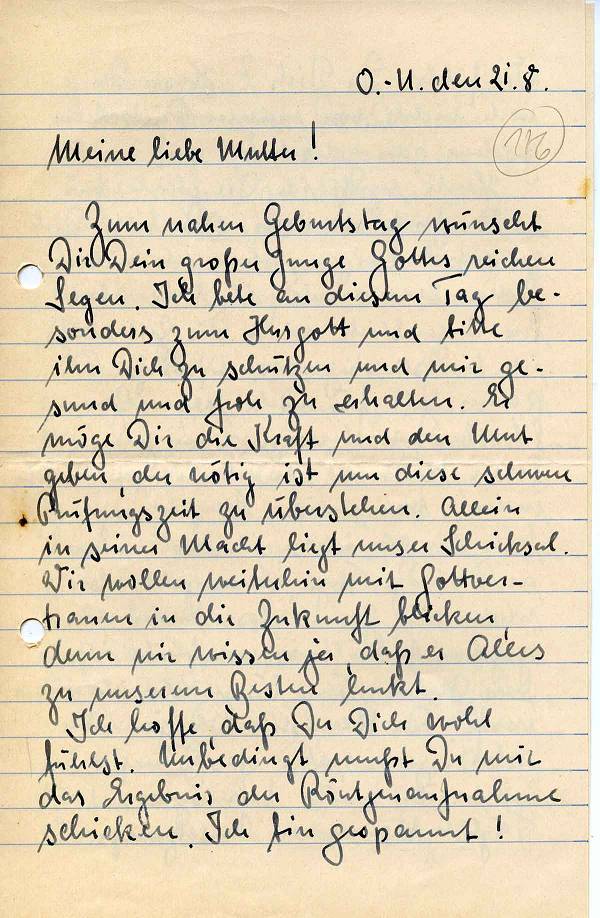 O.-U. den 21.8.
116
Meine liebe Mutter!
Zum nahen Geburtstag wünscht
Dir Dein großer Junge Gottes reichen
Segen. Ich bete an diesem Tag be-
sonders zum Herrgott und bitte
ihn Dich zu schützen und mir ge-
sund und froh zu erhalten. Er
möge Dir die Kraft und den Mut
geben, der nötig ist um diese schwere
Prüfungszeit zu überstehen. Allein
in seiner Macht liegt unser Schicksal.
Wir wollen weiterhin mit Gottver-
trauen in die Zukunft blicken,
denn wir wissen ja, daß er Alles
zu unserem Besten lenkt.
Ich hoffe, daß Du Dich wohl
fühlst. Unbedingt mußt Du mir
das Ergebnis der Röntgenaufnahme
schicken. Ich bin gespannt!